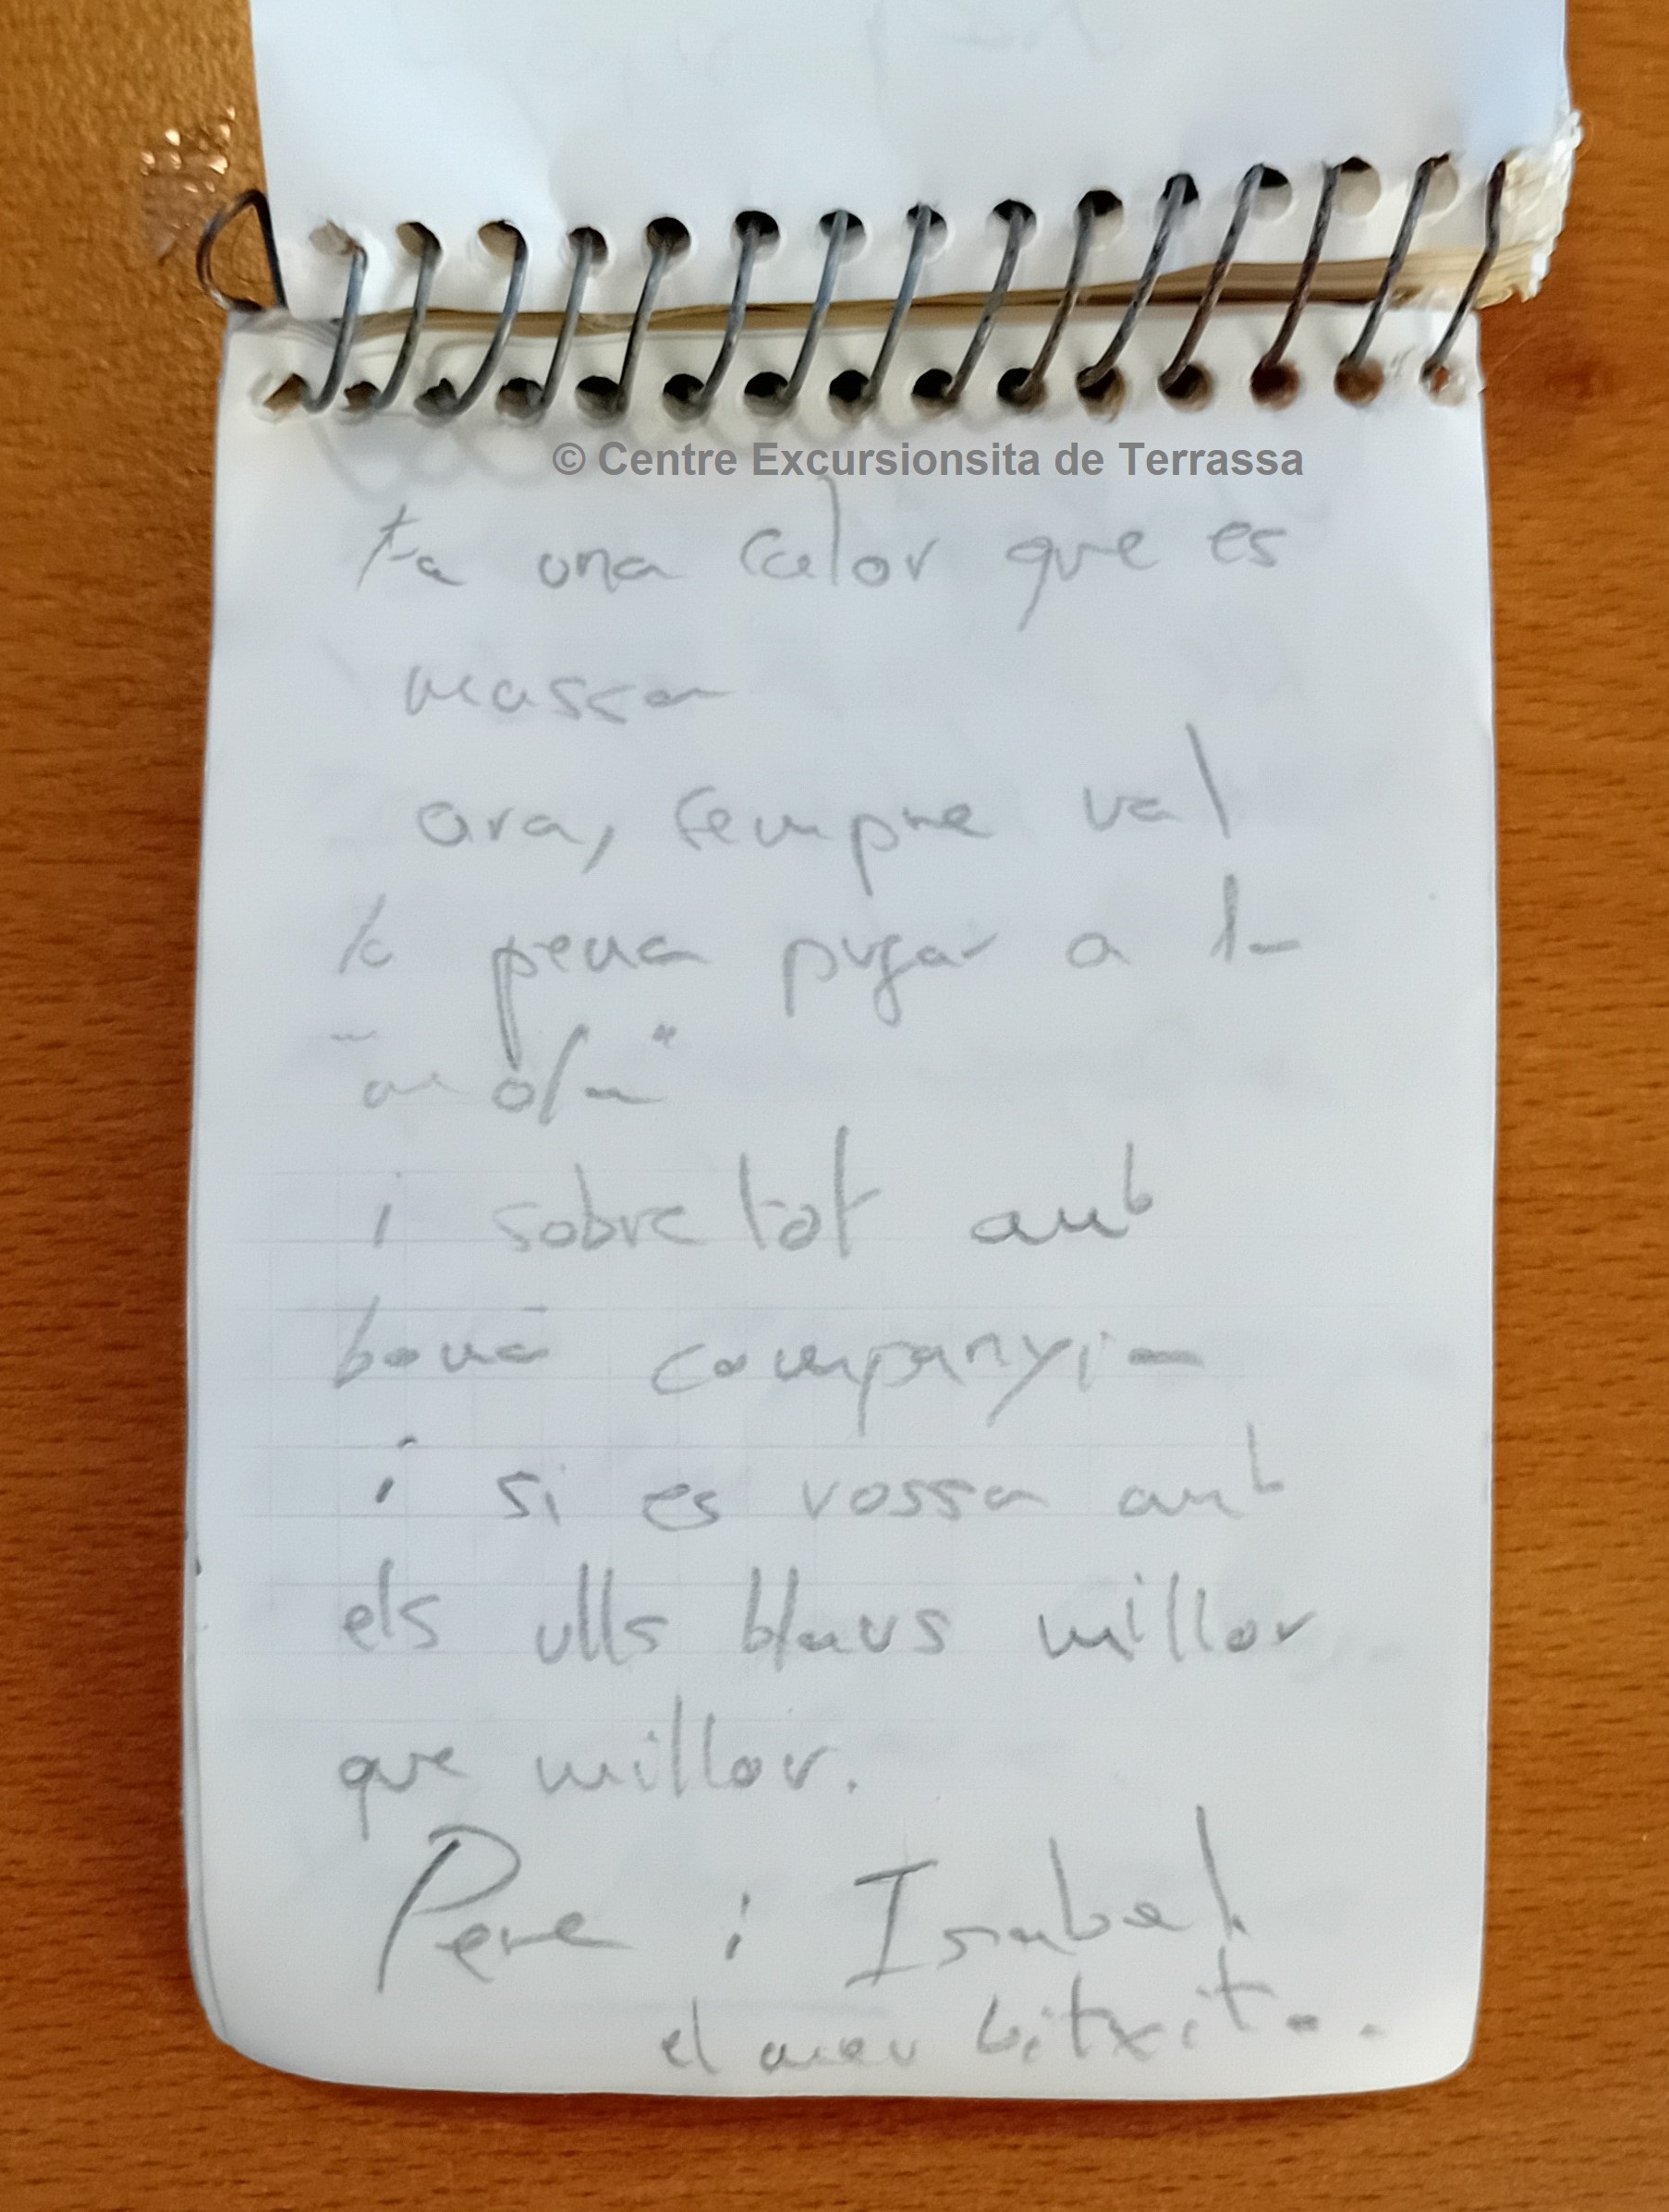 © Centre Excursionsita de Terrassa
Fa una calor que es
massa
ora, sempre val
la pena pugar a la
"mola"
i sobre tot amb
bona companyia
i si es rossa amb
els ulls blaus millor
que millor.
Pere i Isabel.
el meu bitxit..